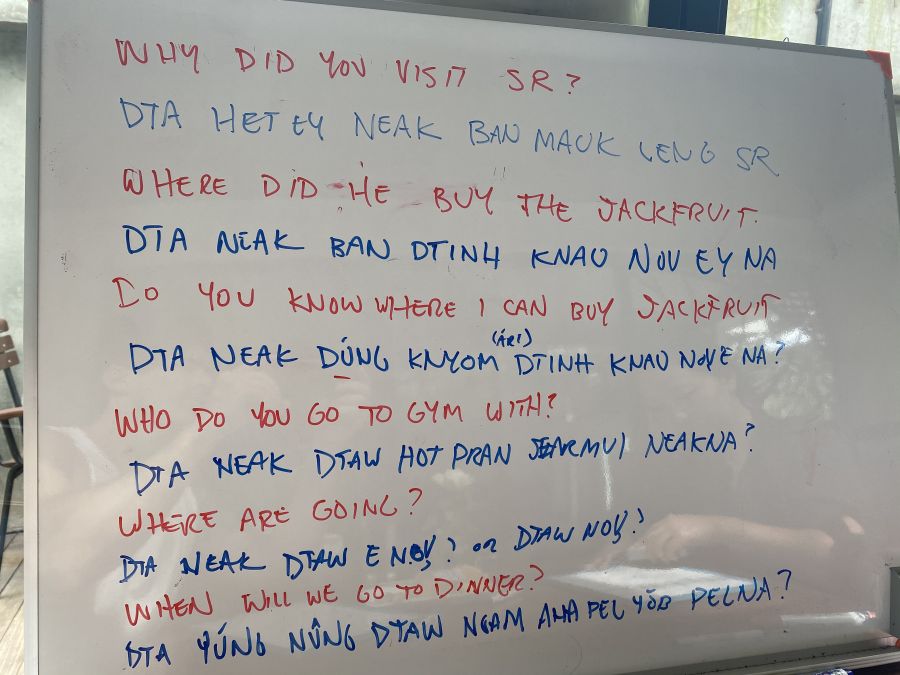 WHY DID YOU VISIT SR?
DTA HET EY NEAK BAN MAUK LENG SR
WHERE DID HE BUY THE JACKFRUIT.
DTA NEAK BAN DTINH KNAO NOV EY NA
DO YOU KNOW WHERE I CAN BUY JACKFRUIT
(ÁRI)
DTA NEAK DÚNG KNYOM DTINH KNAO NOV E NA?
WHO DO YOU GO TO GYM WITH?
DTA NEAK DTAW HOT PRAN JEARMUI NEAKNA?
WHERE ARE GOING?
DTA NEAK DTAW E NOV? OR DTAW NOV?
WHEN WILL WE GO TO DINNER?
DTA YÚNG NÛNG DTAW NGAM AHA PEL YÖB PELNA?